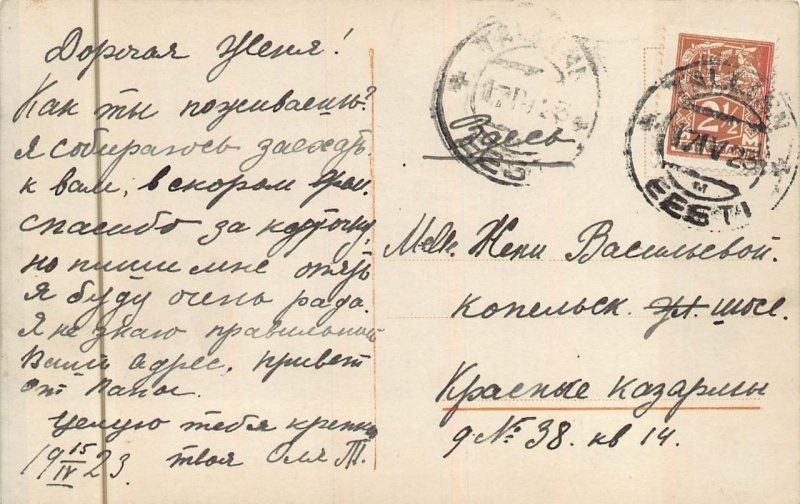 Дорогая Женя!
Как ты поживаешь?
Я собираюсь заехать
к вам, в скором
спасибо за карточку,
но пиши мне опять
Я буду очень рада.
Я не знаю правильной
Ваш адрес, привет
от Папы.
Целую тебя крепко
19 15/IV 23. твоя Оля Т.
TALLINN
17 IV 23
EESTI
Здесь
2½
TALLINN
17 IV 23
M
EESTI
Mlle. Жени Васильевой.
Копельск. шосс.
Красные казармы
д № 38. кв 14.